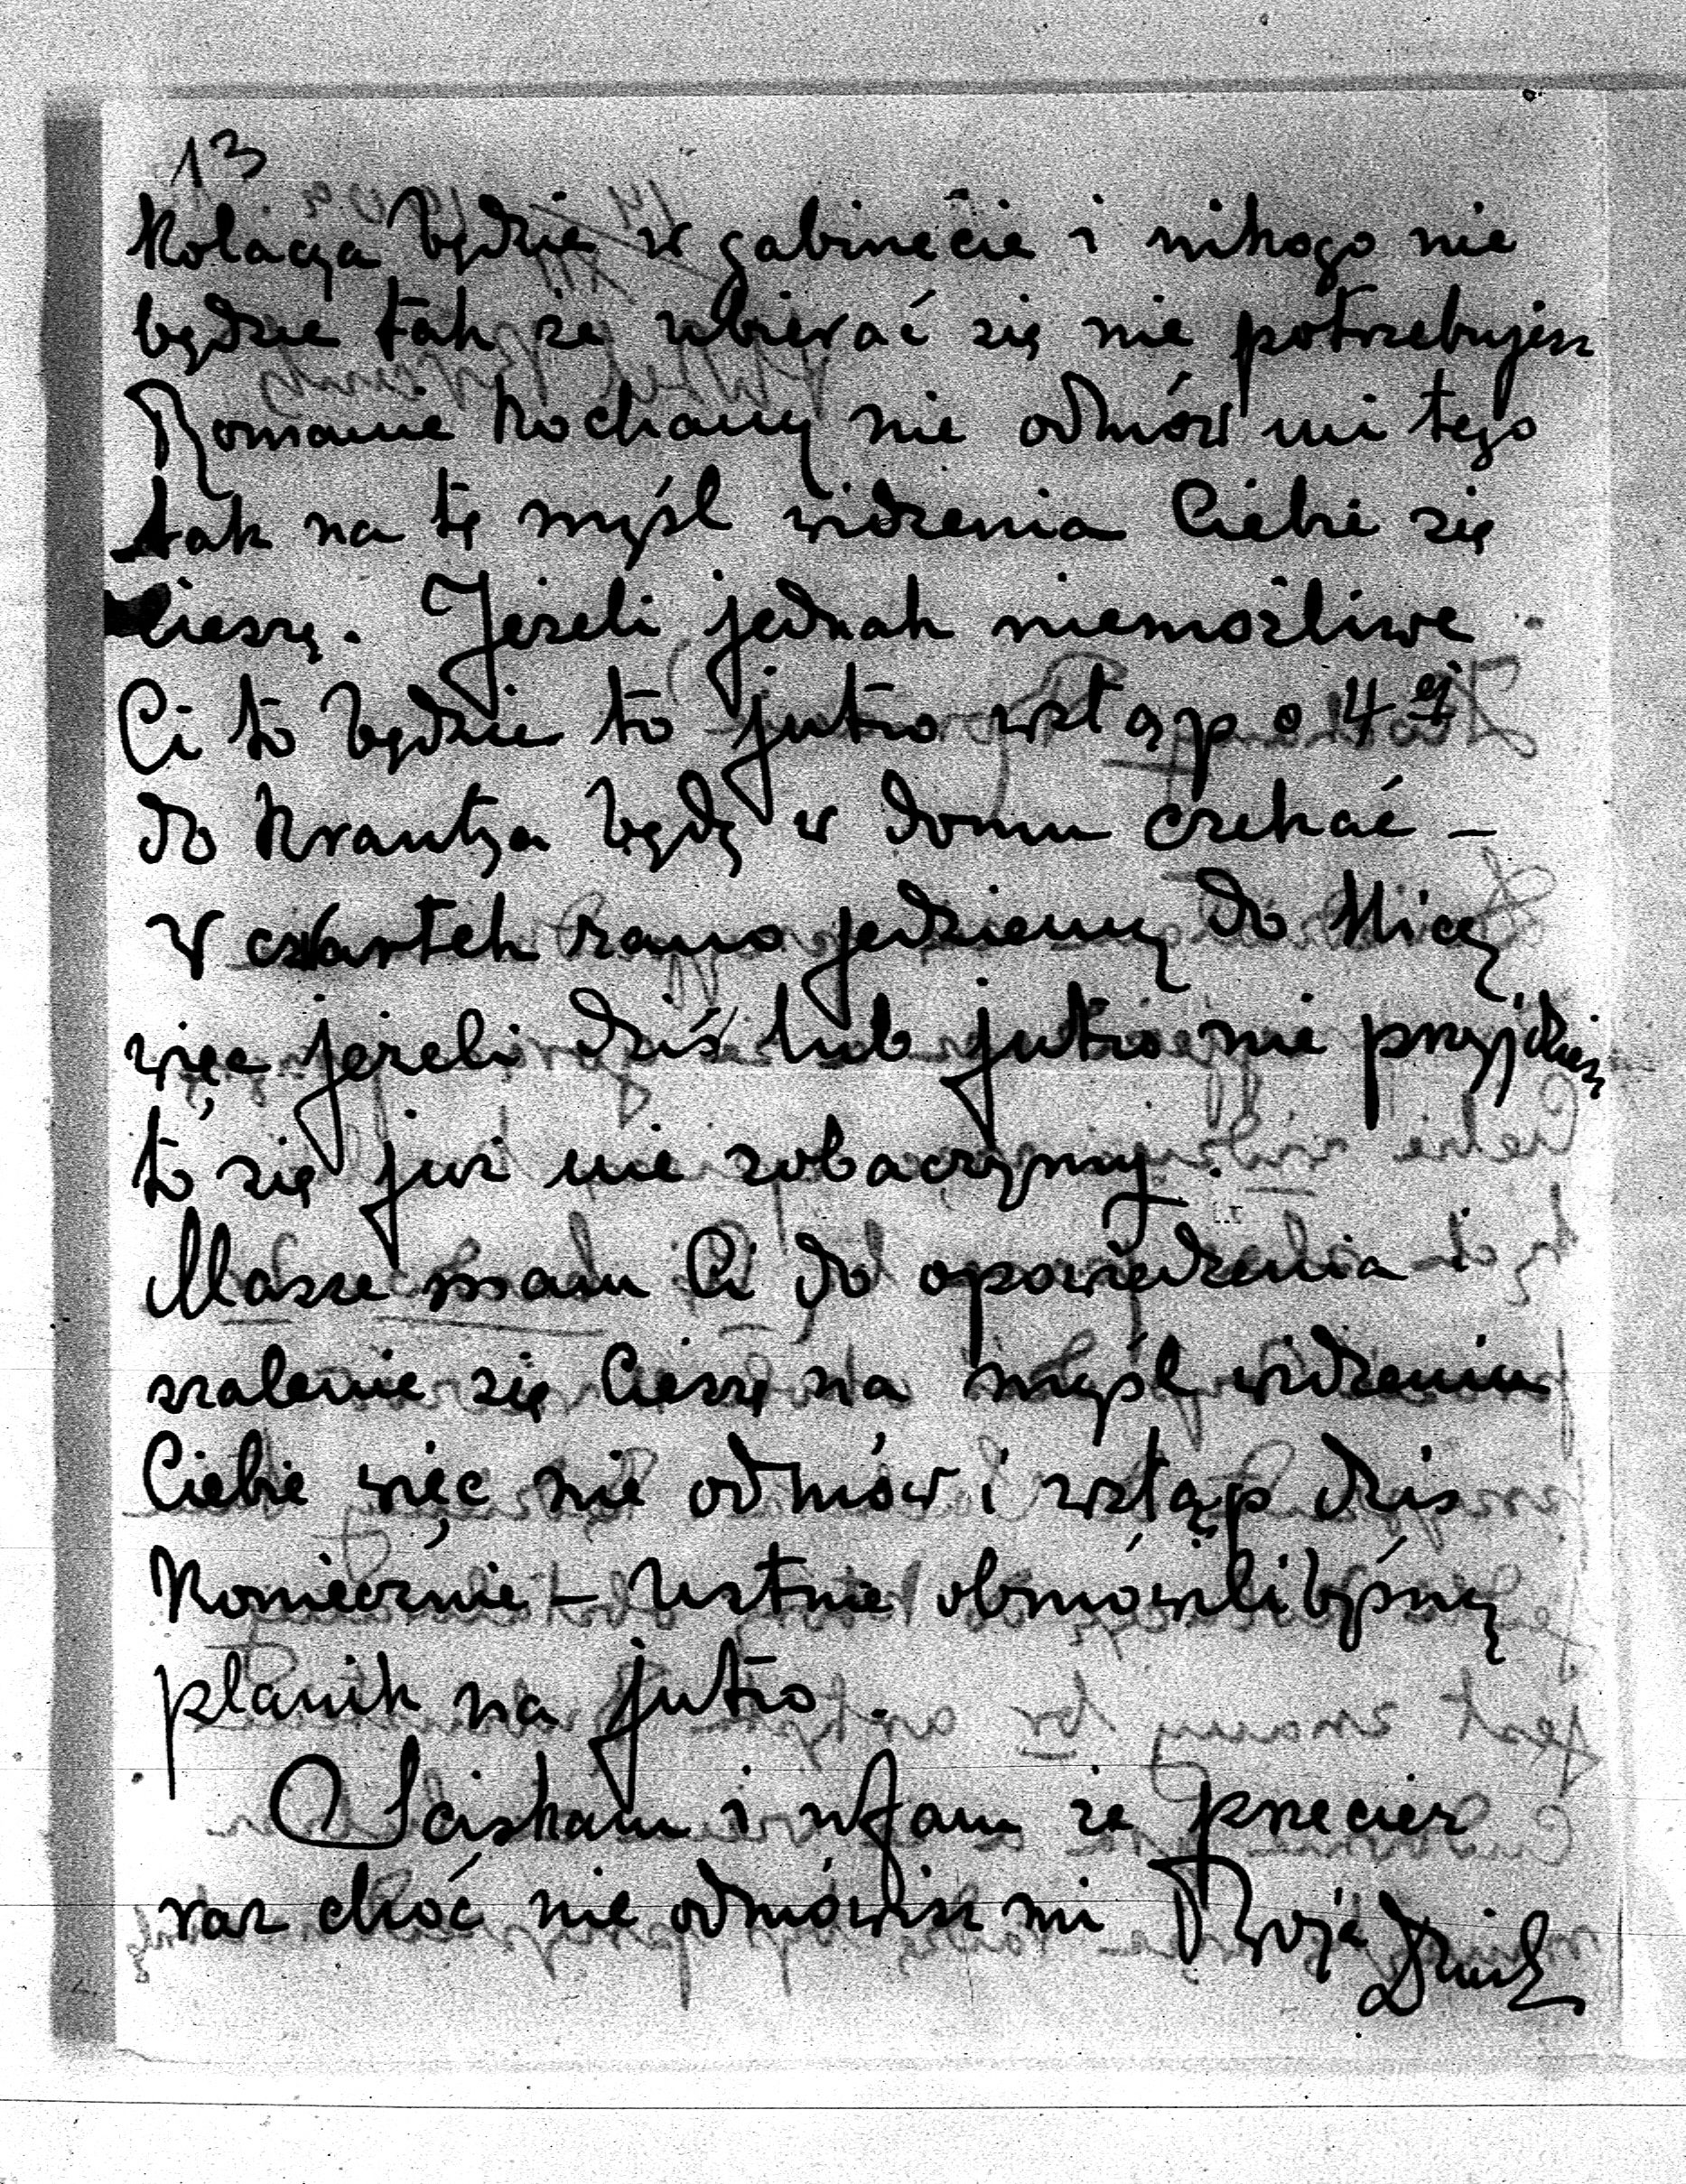 13
Kolacya będzie w gabinecie i nikogo nie
będzie tak że ubierać się nie potrzebujesz
Romanie Kochany nie odmów mi tego
tak na tę myśl widzenia Ciebie się
cieszę. Jeżeli jednak niemożliwe
Ci to będzie to jutro wstąp o 4ej
do Krantza będę w domu czekać –
W czwartek rano jedziemy do Nicy
więc jeżeli dziś lub jutro nie przyjdziesz
to się już nie zobaczymy.
Masse mam Ci do opowiedzenia i
szalenie się Cieszę na myśl widzenia
Ciebie więc nie odmów i wstąp dziś
Koniecznie – Ustnie obmówilibyśmy
planik na jutro.
Ściskam i ufam że przecież
raz choć nie odmówisz mi Twoja